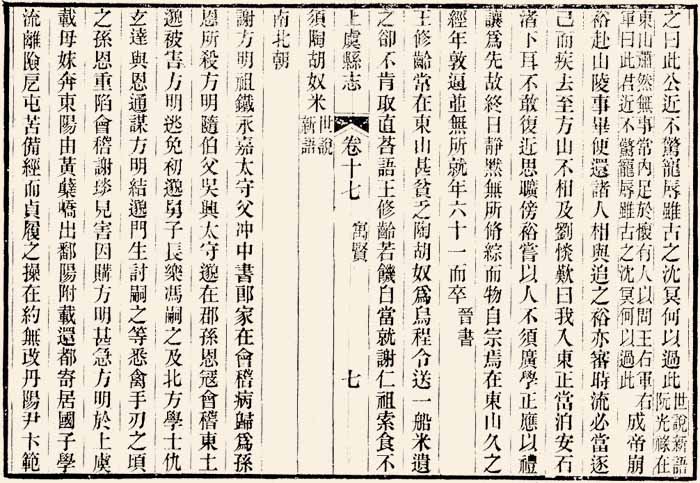 之曰此公近不驚寵辱雖古之沈冥何以過此世說新語阮光祿在
東山蕭然無事常內足於懷有人以問王右軍右
軍曰此君近不驚寵辱雖古之沈冥何以過此成帝崩
裕赴山陵事畢便還諸人相與追之裕亦審時流必當逐
己而疾去至方山不相及劉惔歎曰我入東正當泊安石
渚下耳不敢復近思曠傍裕嘗以人不須廣學正應以禮
讓爲先故終日靜默無所脩綜而物自宗焉在東山久之
經年敦逼並無所就年六十一而卒 晉書
王修齡常在東山甚貧乏陶胡奴爲烏程令送一船米遺
之卻不肯取直荅語王修齡若饑自當就謝仁祖索食不
上虞縣志 卷十七 寓賢 七
須陶胡奴米世說新語
南北朝
謝方明祖鐵永嘉太守父冲中書郎家在會稽病歸爲孫
恩所殺方明隨伯父吳興太守邈在郡孫恩寇會稽東土
邈被害方明逃免初邈舅子長樂馮嗣之及北方學士仇
玄達與恩通謀方明結邈門生討嗣之等悉禽手刃之頃
之孫恩重陷會稽謝琰見害因購方明甚急方明於上虞
載母妹奔東陽由黃蘗嶠出鄱陽附載還都寄居國子學
流離險戹屯苦備經而貞履之操在約無改丹陽尹卞範